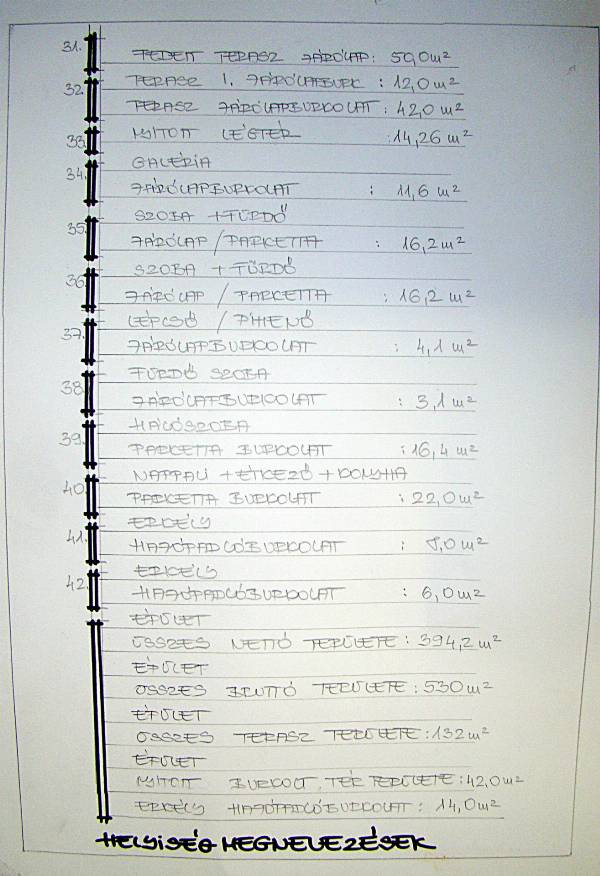 31. FEDETT TERASZ JÁRÓLAP: 50,0 m²
TERASZ 1. JÁRÓLAPBURK : 12,0 m²
32. TERASZ JÁRÓLAPBURKOLAT : 42,0 m²
33. NYITOTT LÉGTÉR : 14,26 m²
GALÉRIA
34. JÁRÓLAPBURKOLAT : 11,6 m²
SZOBA + FÜRDŐ
35. JÁRÓLAP / PARKETTA : 16,2 m²
SZOBA + FÜRDŐ
36. JÁRÓLAP / PARKETTA : 16,2 m²
LÉPCSŐ / PIHENŐ
37. JÁRÓLAPBURKOLAT : 4,1 m²
FÜRDŐ SZOBA
38. JÁRÓLAPBURKOLAT : 3,1 m²
HÁLÓSZOBA
39. PARKETTA BURKOLAT : 16,4 m²
NAPPALI + ÉTKEZŐ + KONYHA
40. PARKETTA BURKOLAT : 22,0 m²
ERKÉLY
41. HAJÓPADLÓBURKOLAT : 8,0 m²
ERKÉLY
42. HAJÓPADLÓBURKOLAT : 6,0 m²
ÉPÜLET
ÖSSZES NETTÓ TERÜLETE : 394,2 m²
ÉPÜLET
ÖSSZES BRUTTÓ TERÜLETE : 530 m²
ÉPÜLET
ÖSSZES TERASZ TERÜLETE : 132 m²
ÉPÜLET
NYITOTT BURKOLT. TÉR TERÜLETE : 42,0 m²
ERKÉLY HAJÓPADLÓBURKOLAT : 14,0 m²
HELYISÉG MEGNEVEZÉSEK